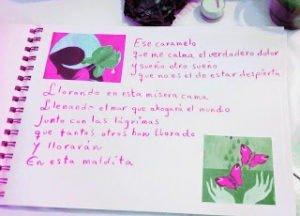 Ese caramelo
que me calma el verdadero dolor
y sueño otro sueño
que no es el de estar despierta
Llorando en esta misera cama
Llenando el mar que ahogará el mundo
Junto con las lágrimas
que tantos otros han llorado
y llorarán
En esta maldita